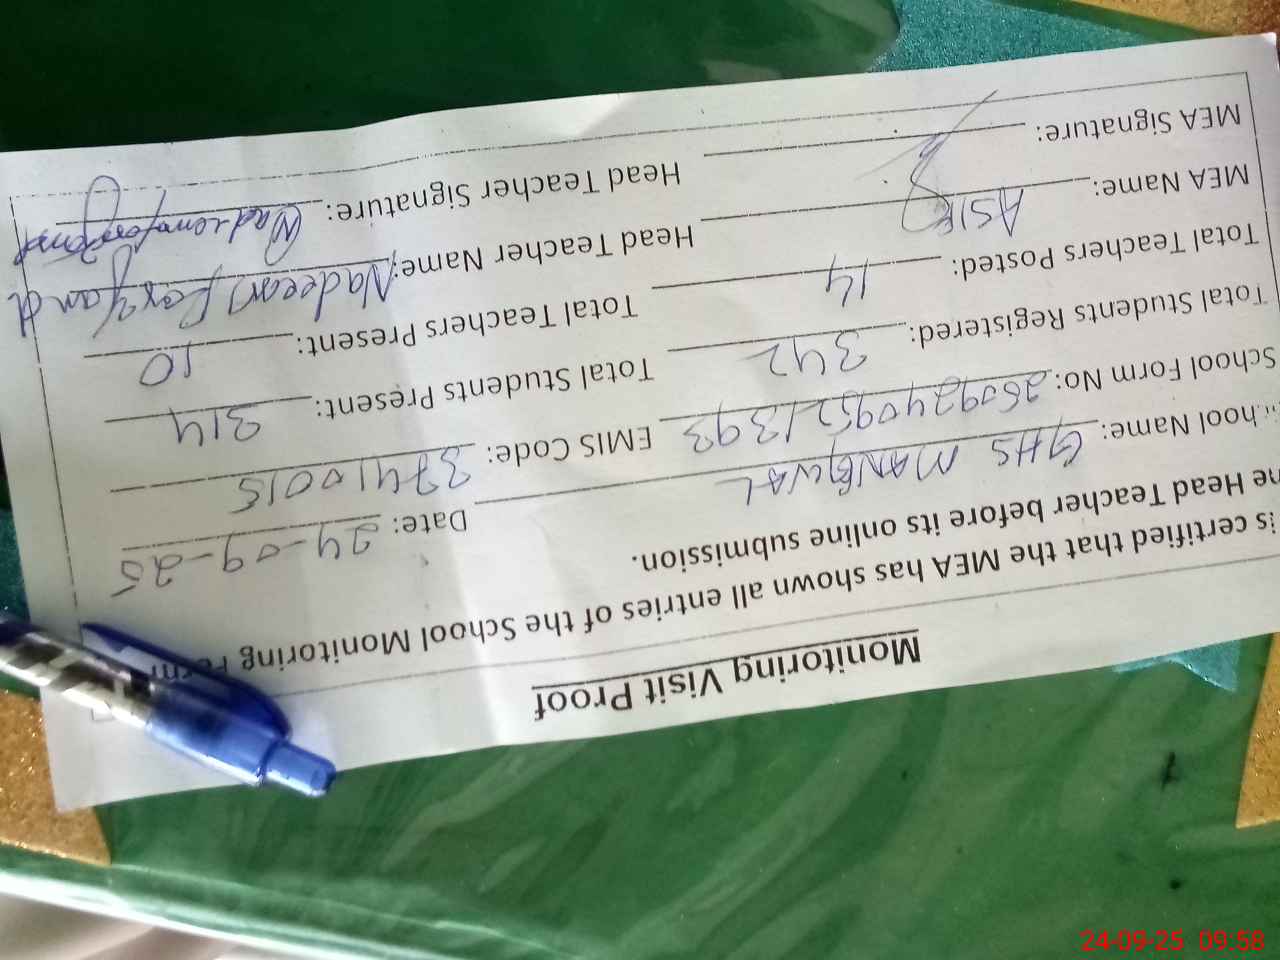 Monitoring Visit Proof
is certified that the MEA has shown all entries of the School Monitoring
Head Teacher before its online submission.
Name: GHS MANGWAL Date: 24-09-25
School Form No: EMIS Code: 37410015
Total Students Registered: 342 Total Students Present: 314
Total Teachers Posted: 14 Total Teachers Present: 10
MEA Name: ASIF Head Teacher Name: Nadeem
MEA Signature: Head Teacher Signature:
24-09-25 09:58